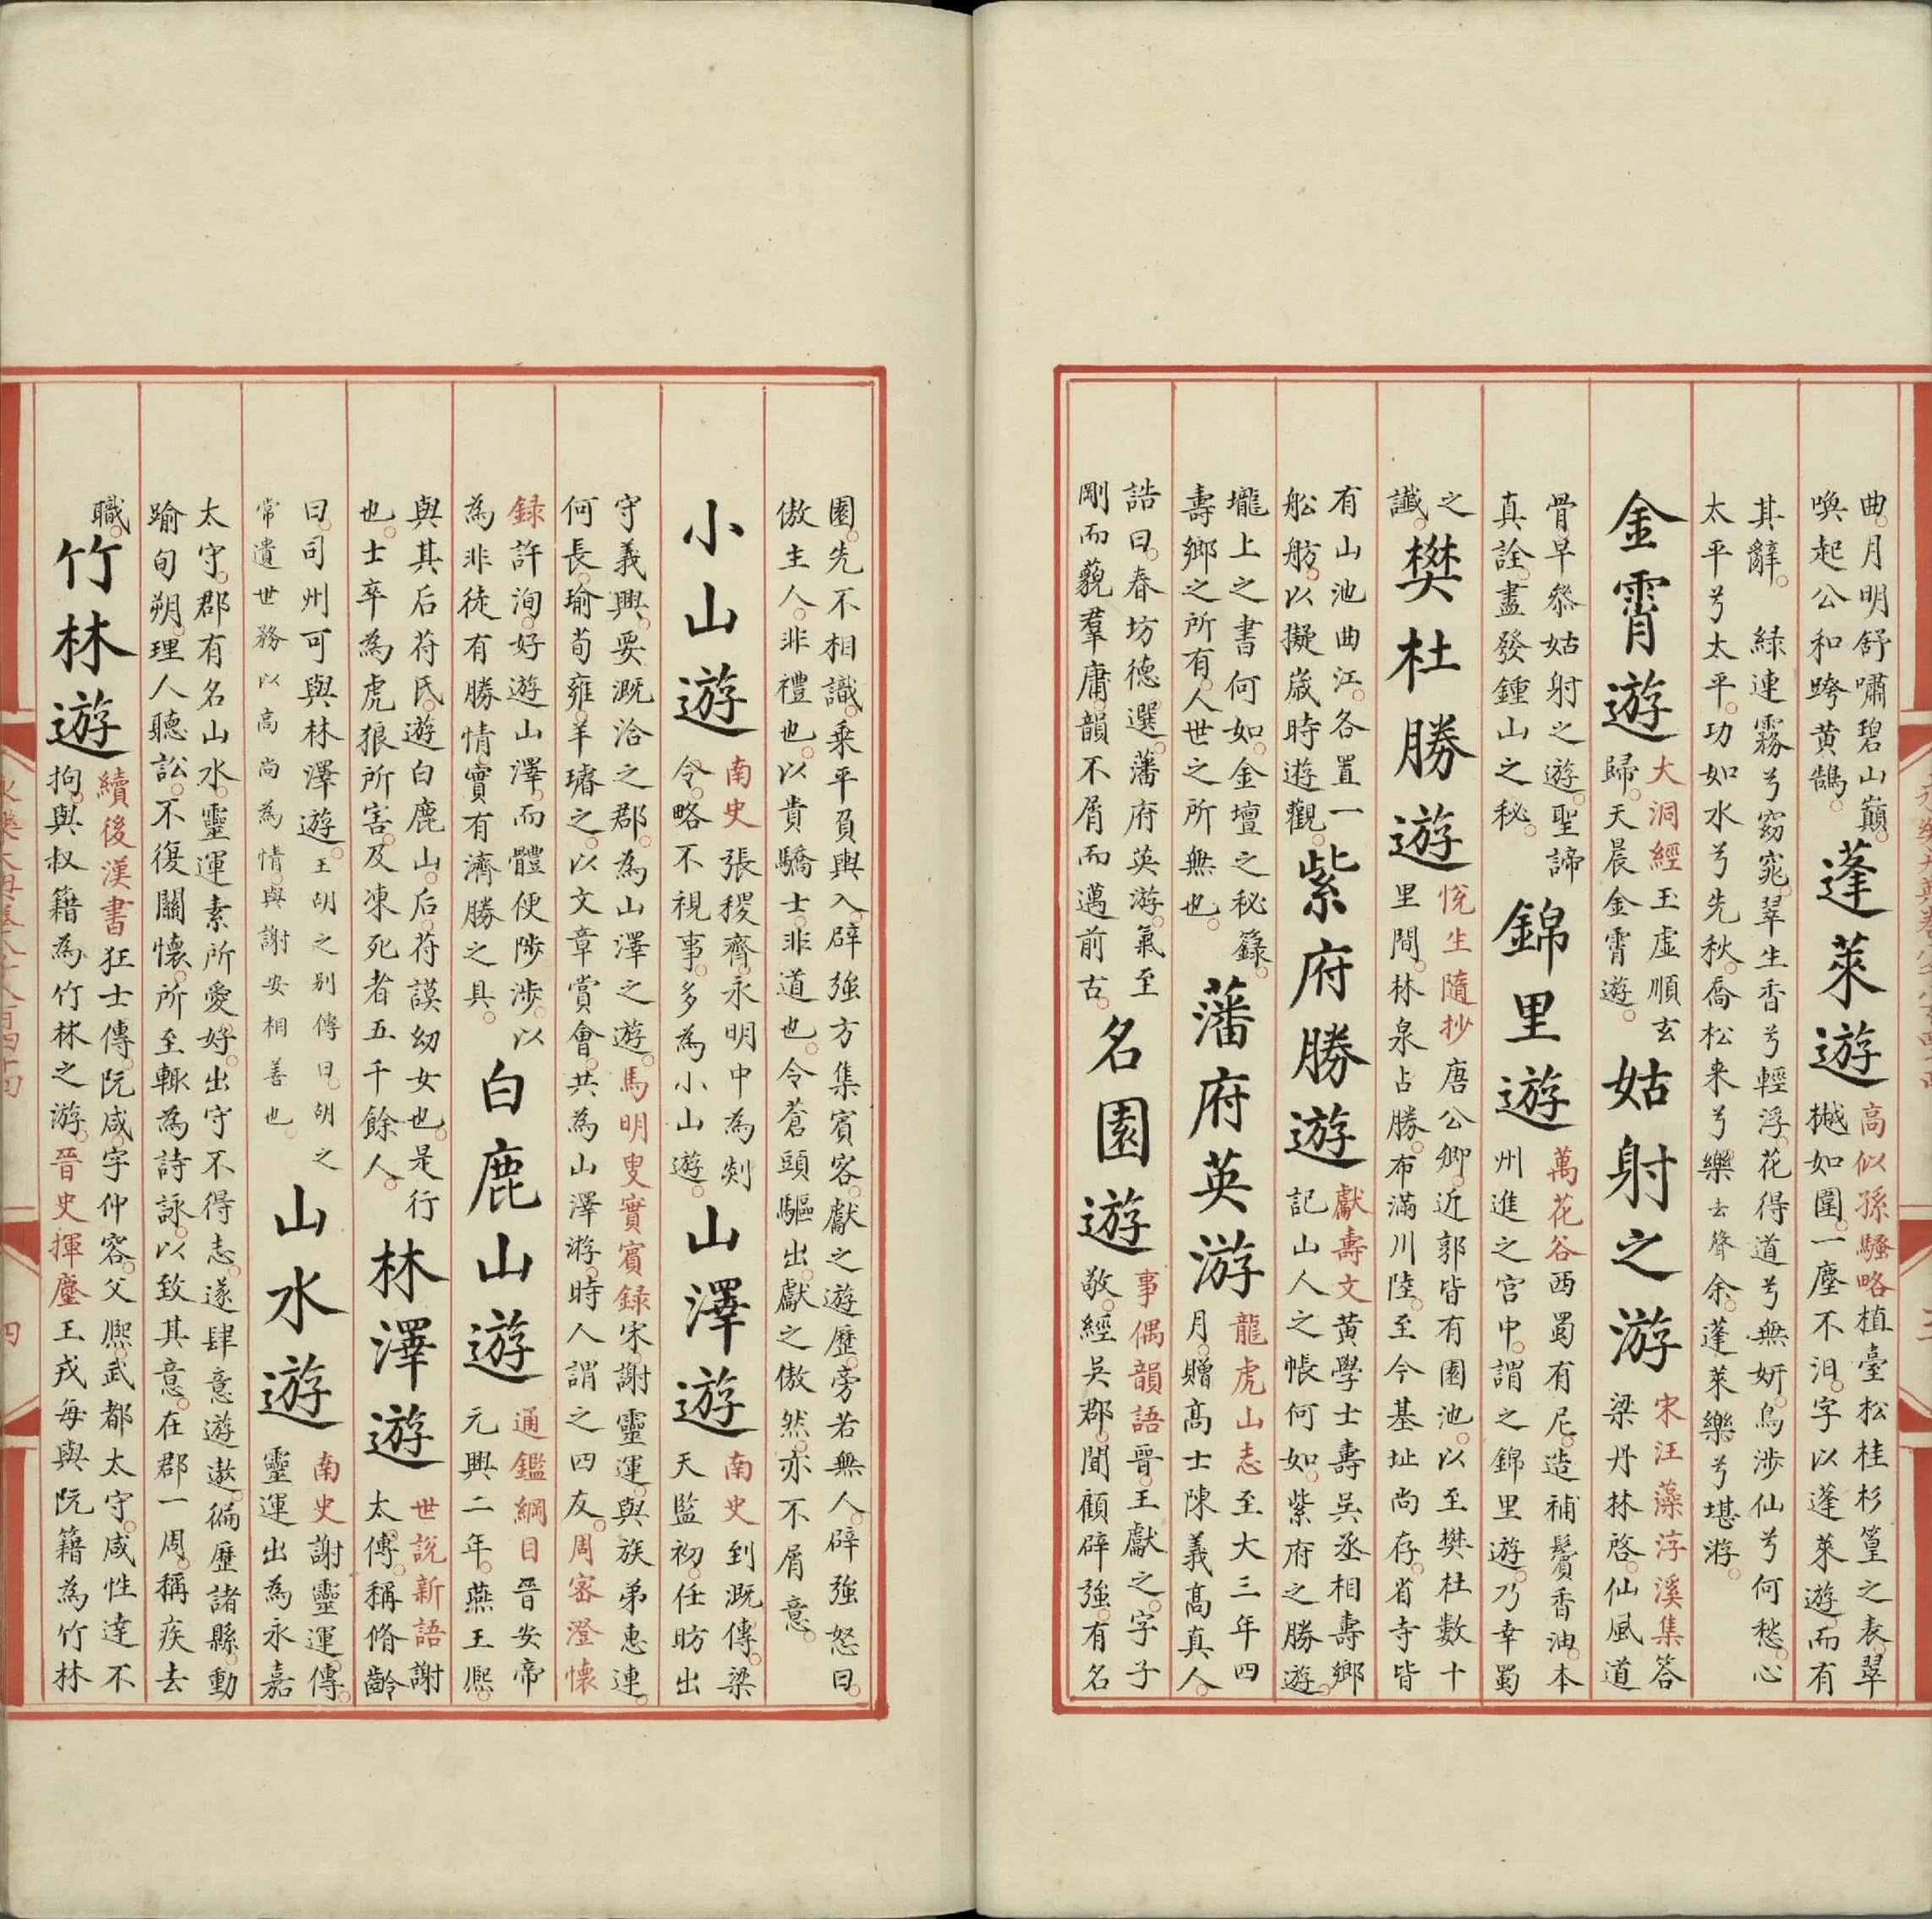 曲。月明舒嘯碧山巔。
喚起公和跨黃鵠。
蓬萊遊
高似孫騷略植臺松桂杉篁之表。翠
樾如圍。一塵不汩。字以蓬萊遊。而有
其辭。 綠連霧兮窈窕。翠生香兮輕浮。花得道兮無妍。鳥涉仙兮何愁。心
太平兮太平。功如水兮先秋。喬松来兮樂去聲余。蓬萊樂兮堪游。
金霄遊
大洞經玉虛順玄
歸。天晨金霄遊。
姑射之游
宋汪藻浮溪集答
梁丹林啓。仙風道
骨。早叅姑射之遊。聖諦
真詮。盡發鍾山之秘。
錦里遊
萬花谷西蜀有尼。造補鬢香油。本
州進之宮中。謂之錦里遊。乃幸蜀
之
讖。
樊杜勝遊
悅生隨抄唐公卿。近郭皆有園池。以至樊杜數十
里間。林泉占勝。布滿川陸。至今基址尚存。省寺皆
有山池曲江。各置一
舩舫。以擬歲時遊觀。
紫府勝遊
獻壽文黃學士壽吳丞相壽鄉
記山人之帳何如。紫府之勝遊。
壠上之書何如。金壇之秘籙。
壽鄉之所有。人世之所無也。
藩府英游
龍虎山志至大三年四
月。贈高士陳義高真人。
誥曰。春坊德選。藩府英游。氣至
剛而藐羣庸。韻不屑而邁前古。
名園遊
事偶韻語晉。王獻之。字子
敬。經吳郡。聞顧辟強。有名
園。先不相識。乗平肩輿入。辟強方集賓客。獻之遊歷。旁若無人。辟強怒曰。
傲主人。非禮也。以貴驕士。非道也。令蒼頭驅出。獻之傲然。亦不屑意。
小山遊
南史張稷齊。永明中為剡
令。略不視事。多為小山遊。
山澤遊
南史到溉傳。梁
天監初。任昉出
守義興。要溉洽之郡。為山澤之遊。馬明叟實賓録宋謝靈運。與族弟惠連。
何長瑜。荀雍。羊璿之。以文章賞會。共為山澤游。時人謂之四友。周密澄懷
録許洵。好遊山澤。而體便陟涉。以
為非徒有勝情。實有濟勝之具。
白鹿山遊
通鑑綱目晉安帝
元興二年。燕王熙。
與其后苻氏。遊白鹿山。后。苻謨幼女也。是行
也。士卒為虎狼所害。及凍死者五千餘人。
林澤遊
世説新語謝
太傅。稱脩齡
曰。司州可與林澤遊。王胡之别傳曰。胡之
常遺世務以高尚為情。與謝安相善也。
山水遊
南史謝靈運傳。
靈運出為永嘉
太守。郡有名山水。靈運素所愛好。出守不得志。遂肆意遊遨。徧歷諸縣。動
踰旬朔。理人聽訟。不復關懷。所至輒為詩詠。以致其意。在郡一周。稱疾去
職。
竹林遊
續後漢書狂士傳。阮咸。字仲容。父熙。武都太守。咸性達不
拘。與叔籍為竹林之游。晉史揮麈王戎每與阮籍為竹林